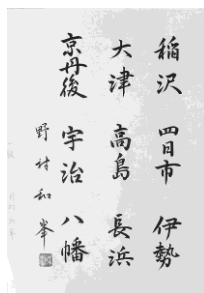 稲沢 四日市 伊勢
大津 高島 長浜
京丹後 宇治 八幡
野村和峯